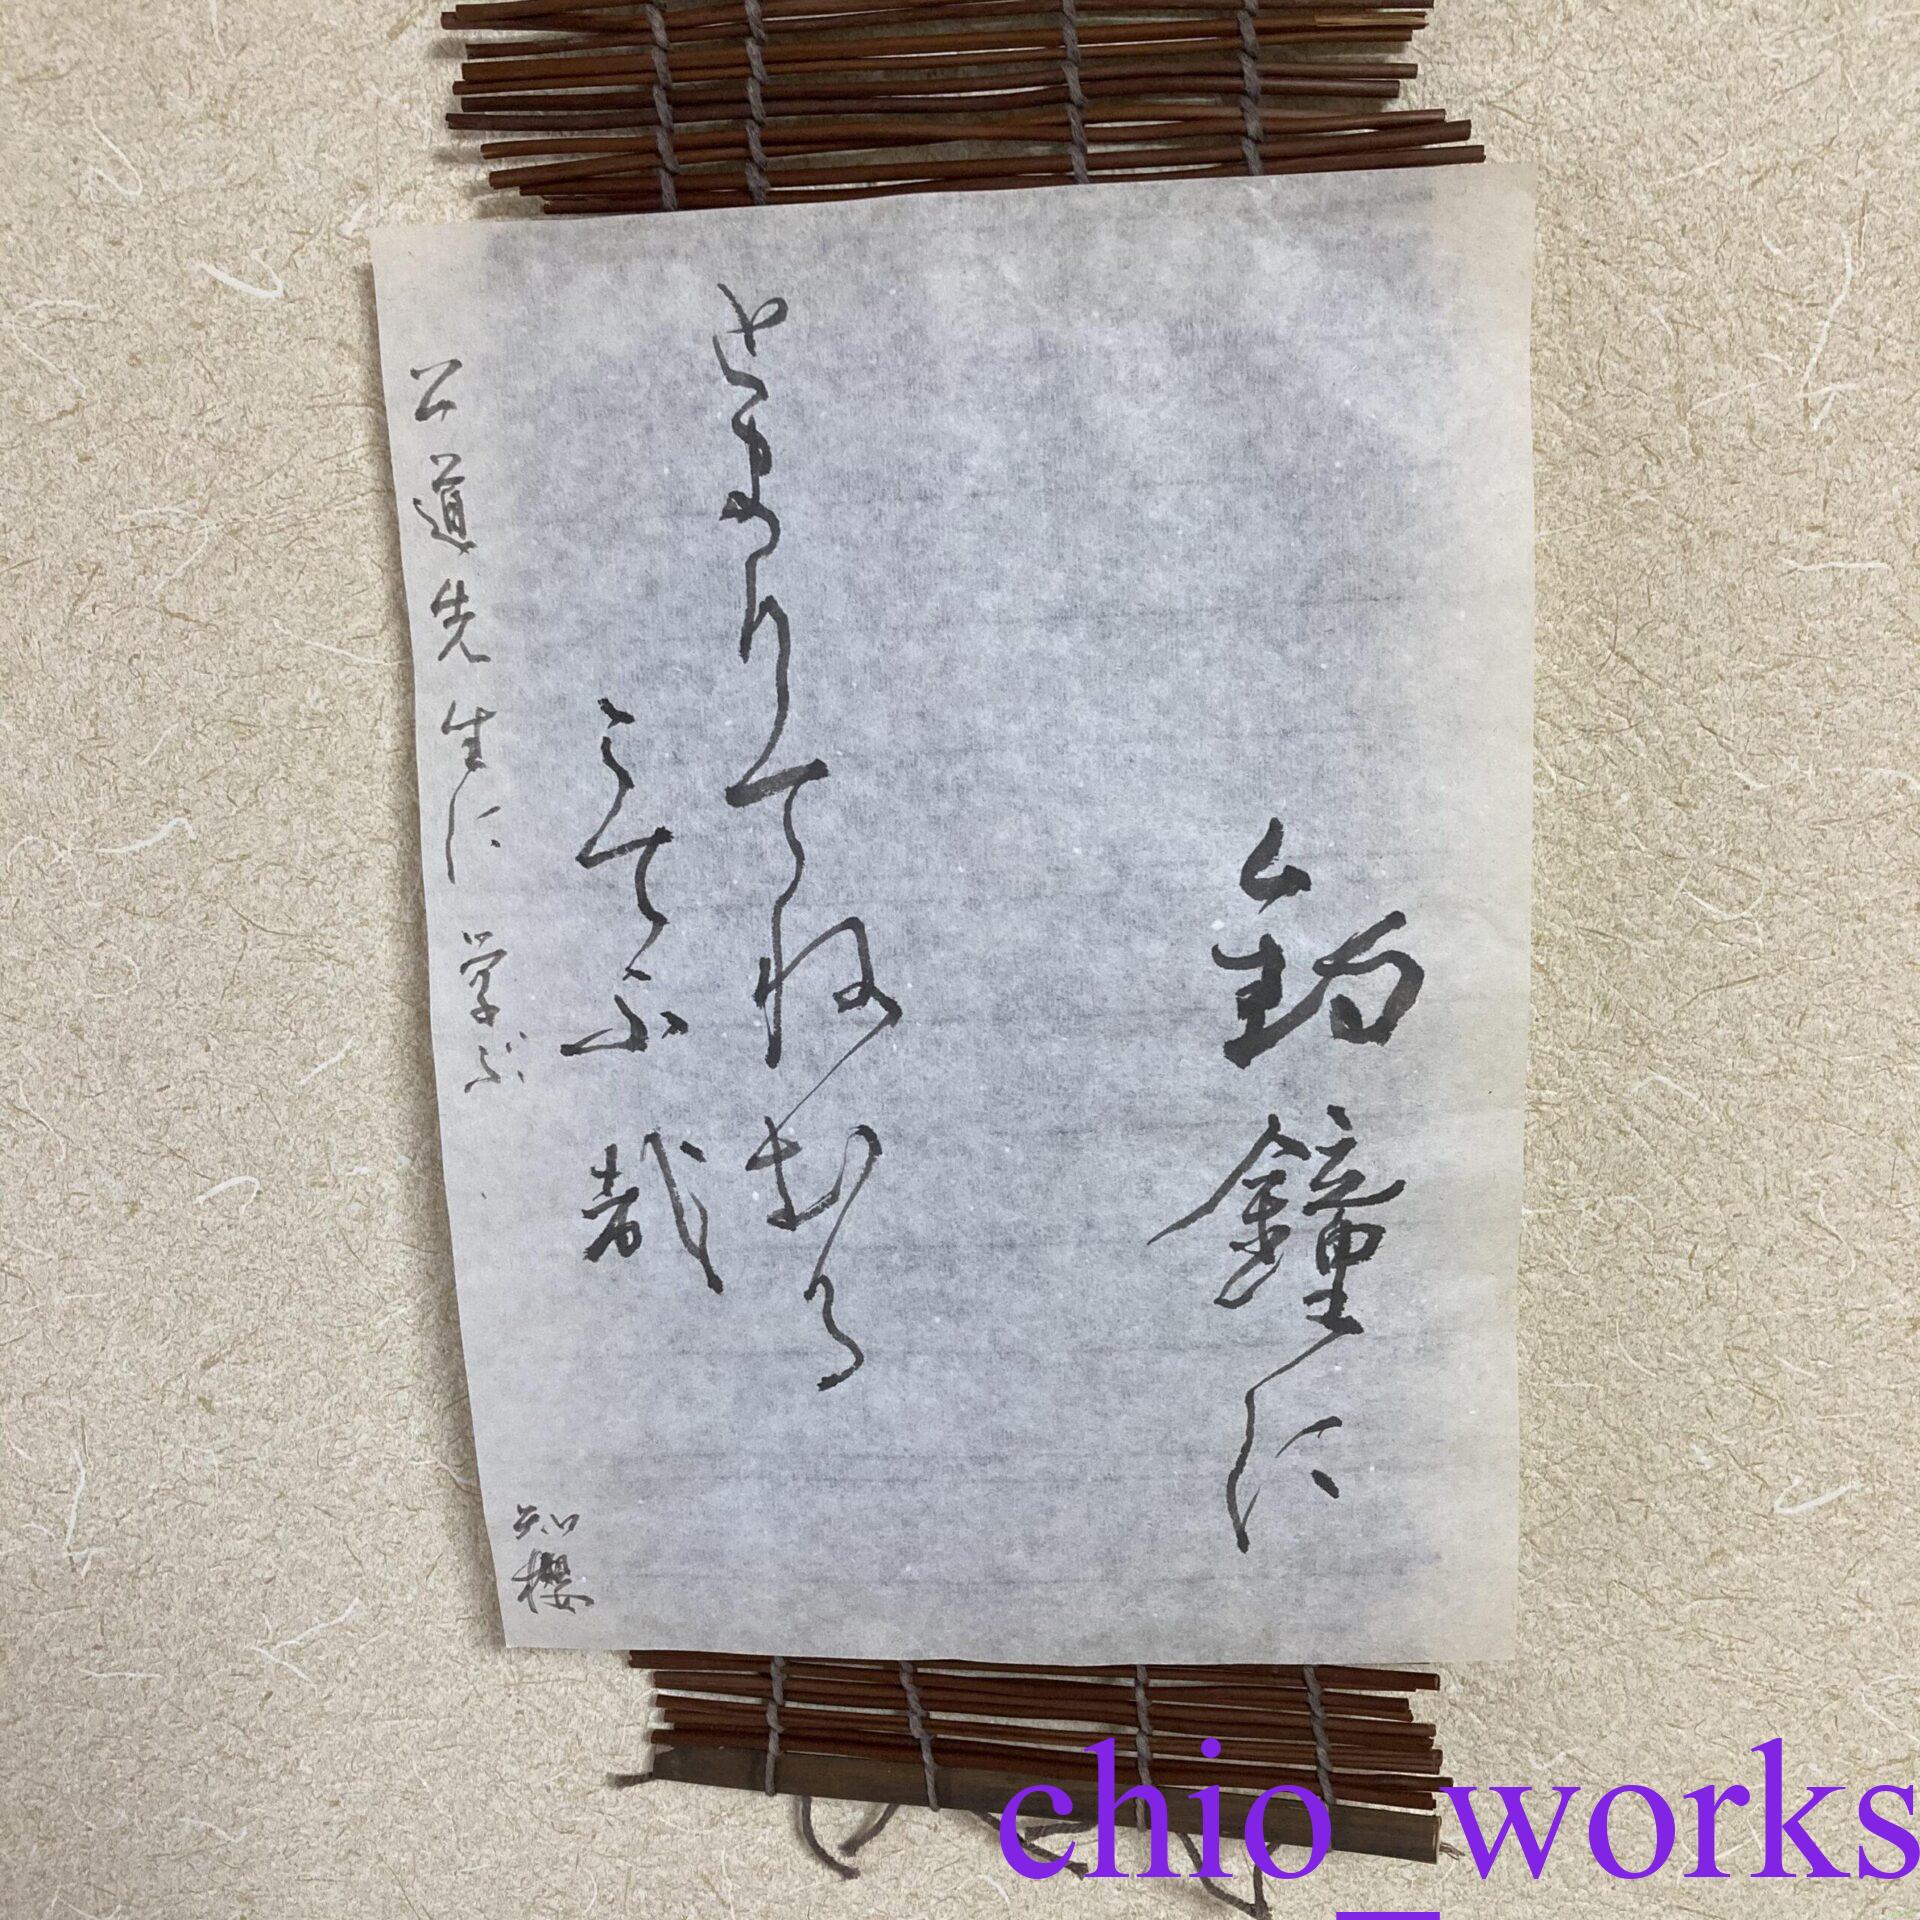 釣鐘に
とまりてねむる
こてふ哉
公道先生に 学ぶ
知櫻
chio_works